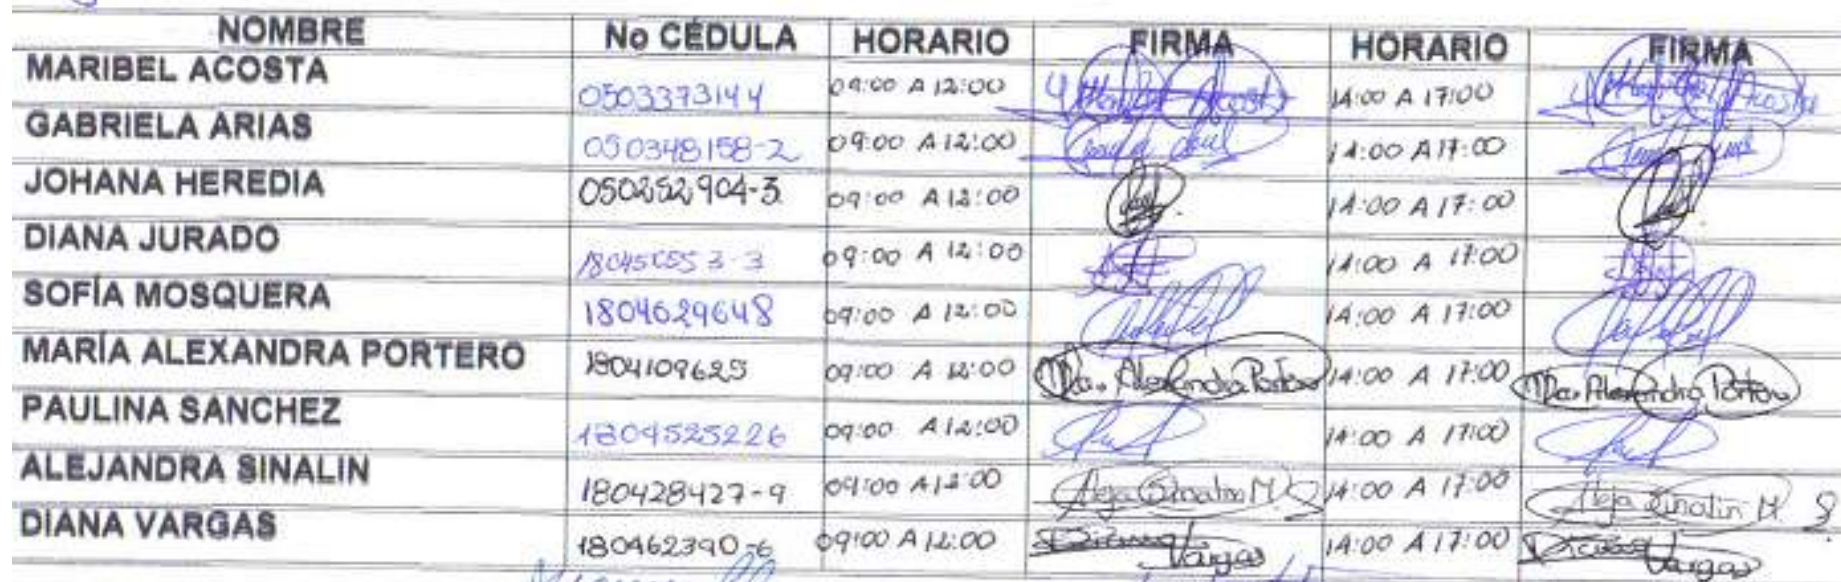 NOMBRE No CÉDULA HORARIO FIRMA HORARIO FIRMA
MARIBEL ACOSTA 0503373144 09:00 A 12:00 14:00 A 17:00
GABRIELA ARIAS 050348158-2 09:00 A 12:00 14:00 A 17:00
JOHANA HEREDIA 050252904-3 09:00 A 12:00 14:00 A 17:00
DIANA JURADO 09:00 A 12:00 14:00 A 17:00
SOFÍA MOSQUERA 1804629648 09:00 A 12:00 14:00 A 17:00
MARÍA ALEXANDRA PORTERO 1804109625 09:00 A 12:00 Ma. Alexandra Portero 14:00 A 17:00 Ma. Alexandra Portero
PAULINA SANCHEZ 1804525226 09:00 A 12:00 14:00 A 17:00
ALEJANDRA SINALIN 180428427-9 09:00 A 12:00 Aleja Sinalin M. 14:00 A 17:00 Aleja Sinalin M.
DIANA VARGAS 180462390-6 09:00 A 12:00 Diana Vargas 14:00 A 17:00 Diana Vargas